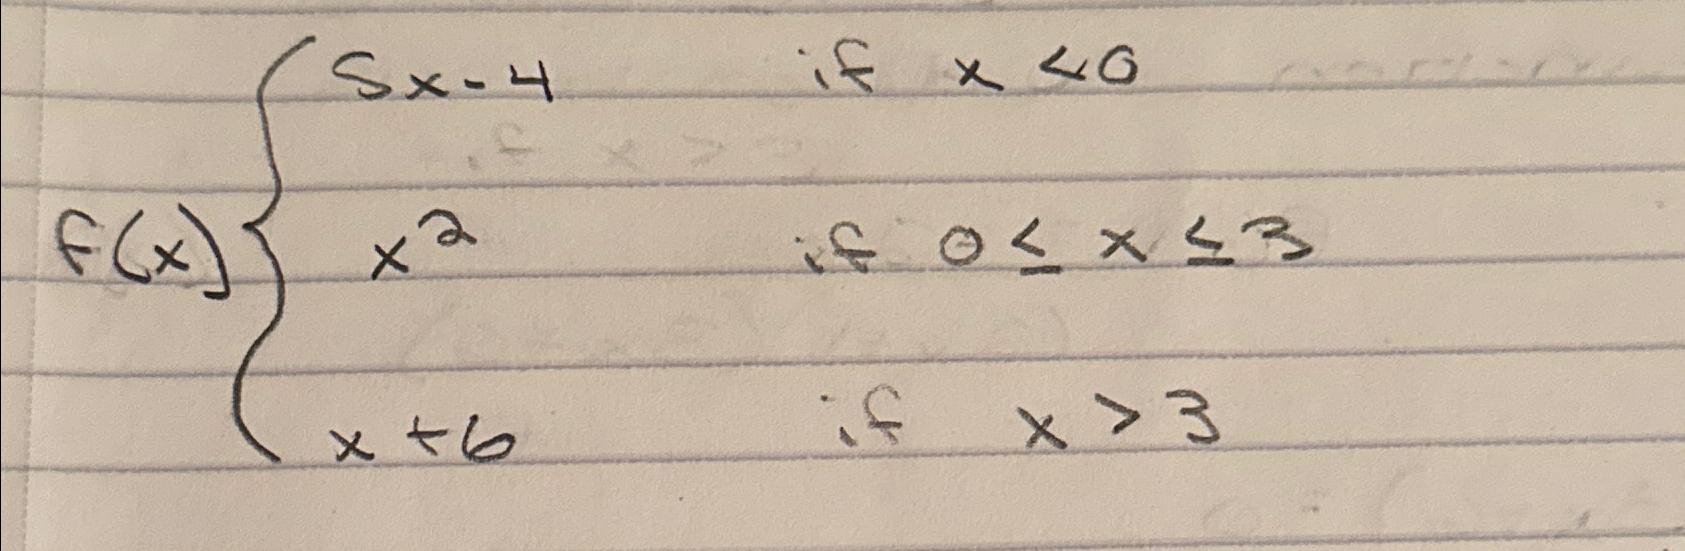 5x-4 if x<0
f(x) { x² if 0≤x≤3
x+6 if x>3